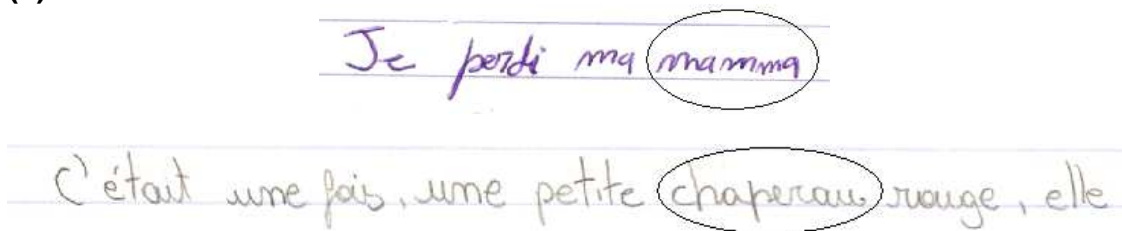 Je perdi ma mamma
C'était une fois, une petite chaperau rouge, elle